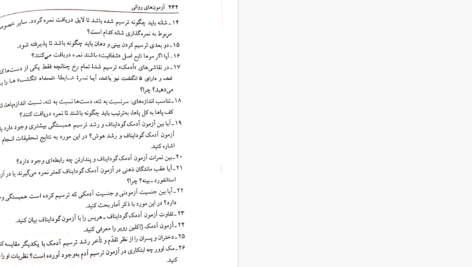 ۲۳۲ آزمون‌های روانی
۱۴ ـ شانه باید چگونه ترسیم شده باشد تا لایق دریافت نمره گردد. سایر خصوص
مربوط به نمره‌گذاری شانه کدام است؟
۱۵ ـ دو بعدی ترسیم کردن بینی و دهان باید چگونه باشد تا پذیرفته شود.
۱۶ ـ آیا اگر موها تابع اصل «شفافیت» باشند نمره دریافت می‌کنند؟
۱۷ ـ در نقاشی‌های «آدمک» ترسیم شدهٔ تمام رخ چنانچه فقط یکی از دست‌های
شده و دارای ۵ انگشت نیز باشد، آیا نمرهٔ ضابطهٔ «تعداد انگشت» ها را
می‌دهید؟ چرا؟
۱۸ ـ تناسب اندازه‌های: سر نسبت به تنه، دست‌ها نسبت به تنه، نسبت اندازه
کف پاها به کل پاها، به‌ترتیب باید چگونه باشند تا نمره دریافت کنند؟
۱۹ ـ آیا بین آزمون آدمک گودایناف و رشد ترسیم همبستگی بیشتری وجود دارد
آزمون آدمک گودایناف و رشد هوش؟ در این مورد به نتایج تحقیقات انجام
اشاره کنید.
۲۰ ـ بین نمرات آزمون آدمک گودایناف و پندارتن چه رابطه‌ای وجود دارد؟
۲۱ ـ آیا عقب ماندگان ذهنی در آزمون آدمک گودایناف کمتر نمره می‌گیرند یا در آز
استانفورد ـ بینه؟ چرا؟
۲۲ ـ آیا بین جنسیت آزمودنی و جنسیت آدمکی که ترسیم کرده است همبستگی
دارد؟ در این مورد با ذکر آمار بحث کنید.
۲۳ ـ تفاوت آزمون آدمک گودایناف ـ هریس را با آزمون گودایناف بیان کنید.
۲۴ ـ آزمون آدمک ژاکلین رویر را معرفی کنید.
۲۵ ـ دختران و پسران را از نظر تقدّم و تأخر رشد ترسیم آدمک با یکدیگر مقایسه کن
۲۶ ـ مک اوور چه ابتکاری در آزمون ترسیم آدم به‌وجود آورده است؟ نظریات او را
کنید.